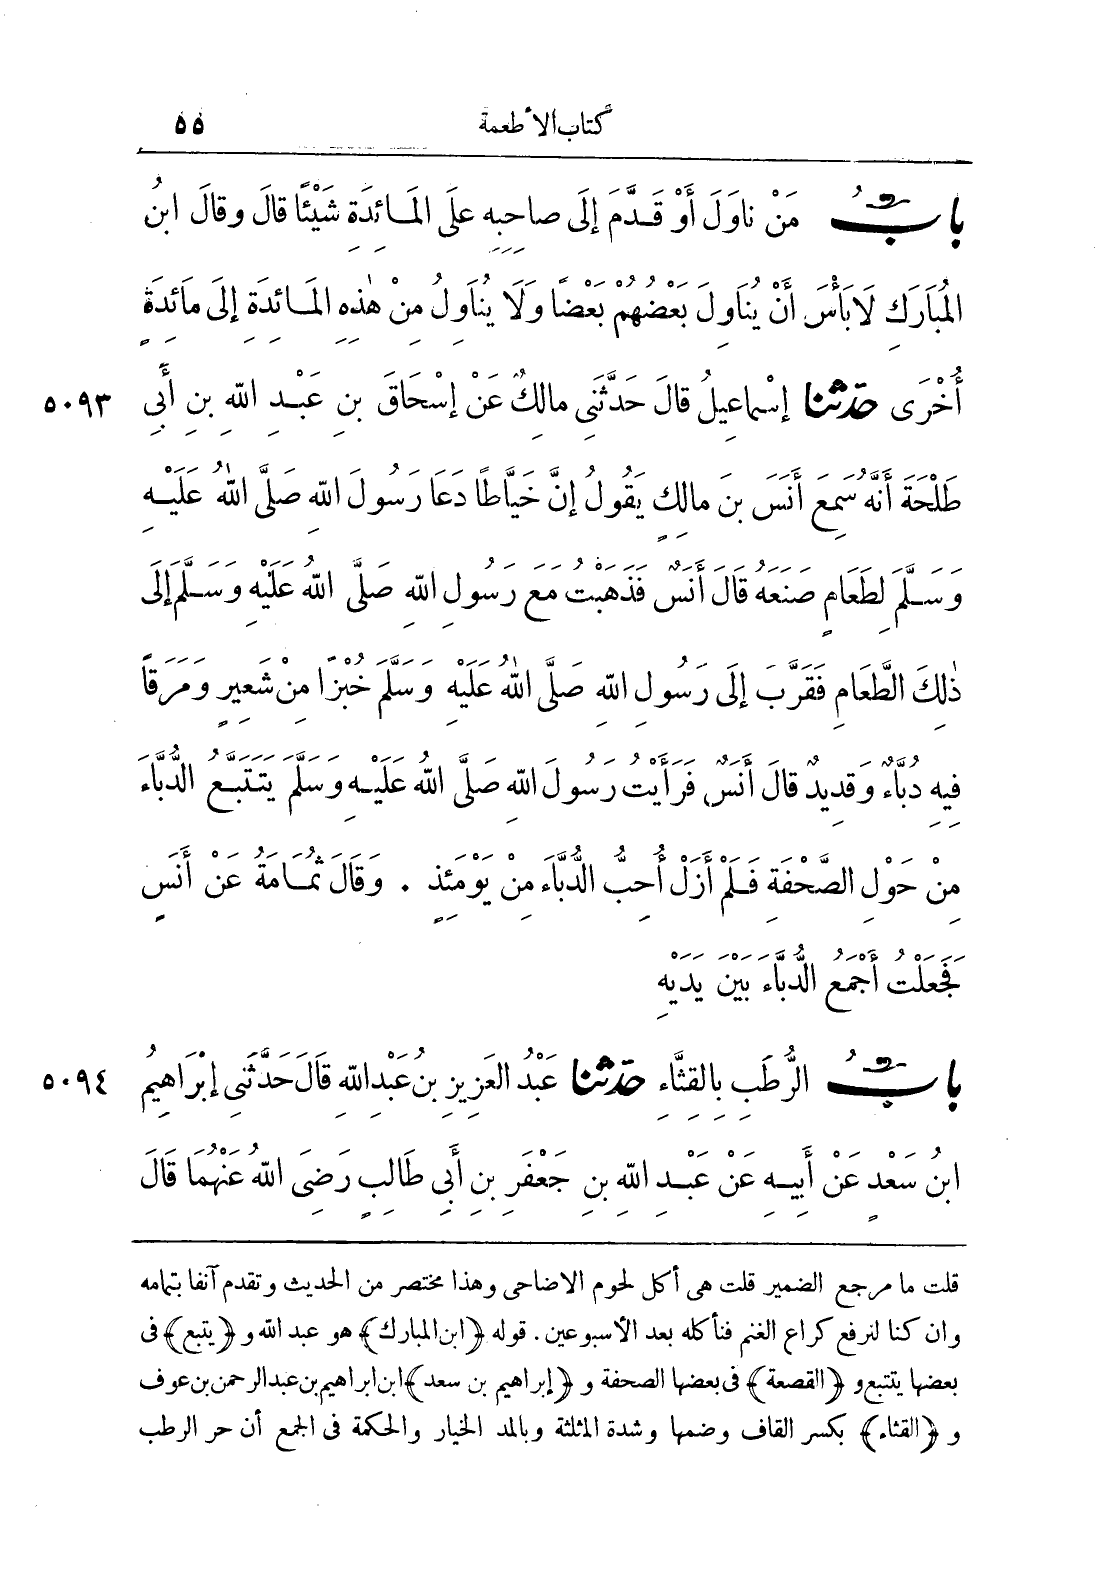 كتاب الأطعمة ٥٥
بابُ مَنْ ناوَلَ أَوْ قَدَّمَ إِلَى صاحِبِهِ علَى المَائِدَةِ شَيْئًا قالَ وقالَ ابنُ
المُبَارَكِ لَا بَأْسَ أَنْ يُنَاوِلَ بَعْضُهُمْ بَعْضًا وَلَا يُنَاوِلُ مِنْ هٰذِهِ المَائِدَةِ إِلَى مَائِدَةٍ
أُخْرَى حدّثنا إِسْمَاعِيلُ قالَ حَدَّثَنِى مالِكٌ عَنْ إِسْحَاقَ بنِ عَبْدِ اللهِ بنِ أَبِى ٥٠٩٣
طَلْحَةَ أَنَّهُ سَمِعَ أَنَسَ بنَ مالِكٍ يَقُولُ إِنَّ خَيَّاطًا دَعَا رَسُولَ اللهِ صَلَّى اللهُ عَلَيْهِ
وَسَلَّمَ لِطَعَامٍ صَنَعَهُ قَالَ أَنَسٌ فَذَهَبْتُ مَعَ رَسُولِ اللهِ صَلَّى اللهُ عَلَيْهِ وَسَلَّمَ إِلَى
ذٰلِكَ الطَّعَامِ فَقَرَّبَ إِلَى رَسُولِ اللهِ صَلَّى اللهُ عَلَيْهِ وَسَلَّمَ خُبْزًا مِنْ شَعِيرٍ وَمَرَقًا
فِيهِ دُبَّاءٌ وَقَدِيدٌ قالَ أَنَسٌ فَرَأَيْتُ رَسُولَ اللهِ صَلَّى اللهُ عَلَيْهِ وَسَلَّمَ يَتَتَبَّعُ الدُّبَّاءَ
مِنْ حَوْلِ الصَّحْفَةِ فَلَمْ أَزَلْ أُحِبُّ الدُّبَّاءَ مِنْ يَوْمَئِذٍ . وَقَالَ ثُمَامَةُ عَنْ أَنَسٍ
فَجَعَلْتُ أَجْمَعُ الدُّبَّاءَ بَيْنَ يَدَيْهِ
بابُ الرُّطَبِ بِالقِثَّاءِ حدّثنا عَبْدُ العَزِيزِ بنُ عَبْدِ اللهِ قَالَ حَدَّثَنِى إِبْرَاهِيمُ ٥٠٩٤
ابنُ سَعْدٍ عَنْ أَبِيهِ عَنْ عَبْدِ اللهِ بنِ جَعْفَرِ بنِ أَبِى طَالِبٍ رَضِىَ اللهُ عَنْهُمَا قَالَ
قلت ما مرجع الضمير قلت هى أكل لحوم الاضاحى وهذا مختصر من الحديث وتقدم آنفا بتمامه
وان كنا لنرفع كراع الغنم فنأكله بعد الأسبوعين. قوله ﴿ابن المبارك﴾ هو عبد الله و ﴿يتبع﴾ فى
بعضها يتتبع و ﴿القصعة﴾ فى بعضها الصحفة و ﴿إبراهيم بن سعد﴾ ابن ابراهيم بن عبدالرحمن بن عوف
و ﴿القثاء﴾ بكسر القاف وضمها وشدة المثلثة وبالمد الخيار والحكمة فى الجمع أن حر الرطب